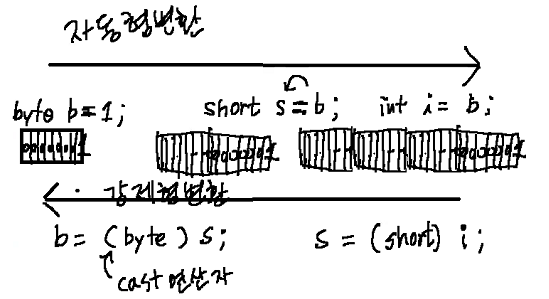 자동형변환
byte b=1;
short s=b;
int i= b;
00000001
00000001
00000001
강제형변환
b= (byte) s;
s = (short) i;
cast 연산자